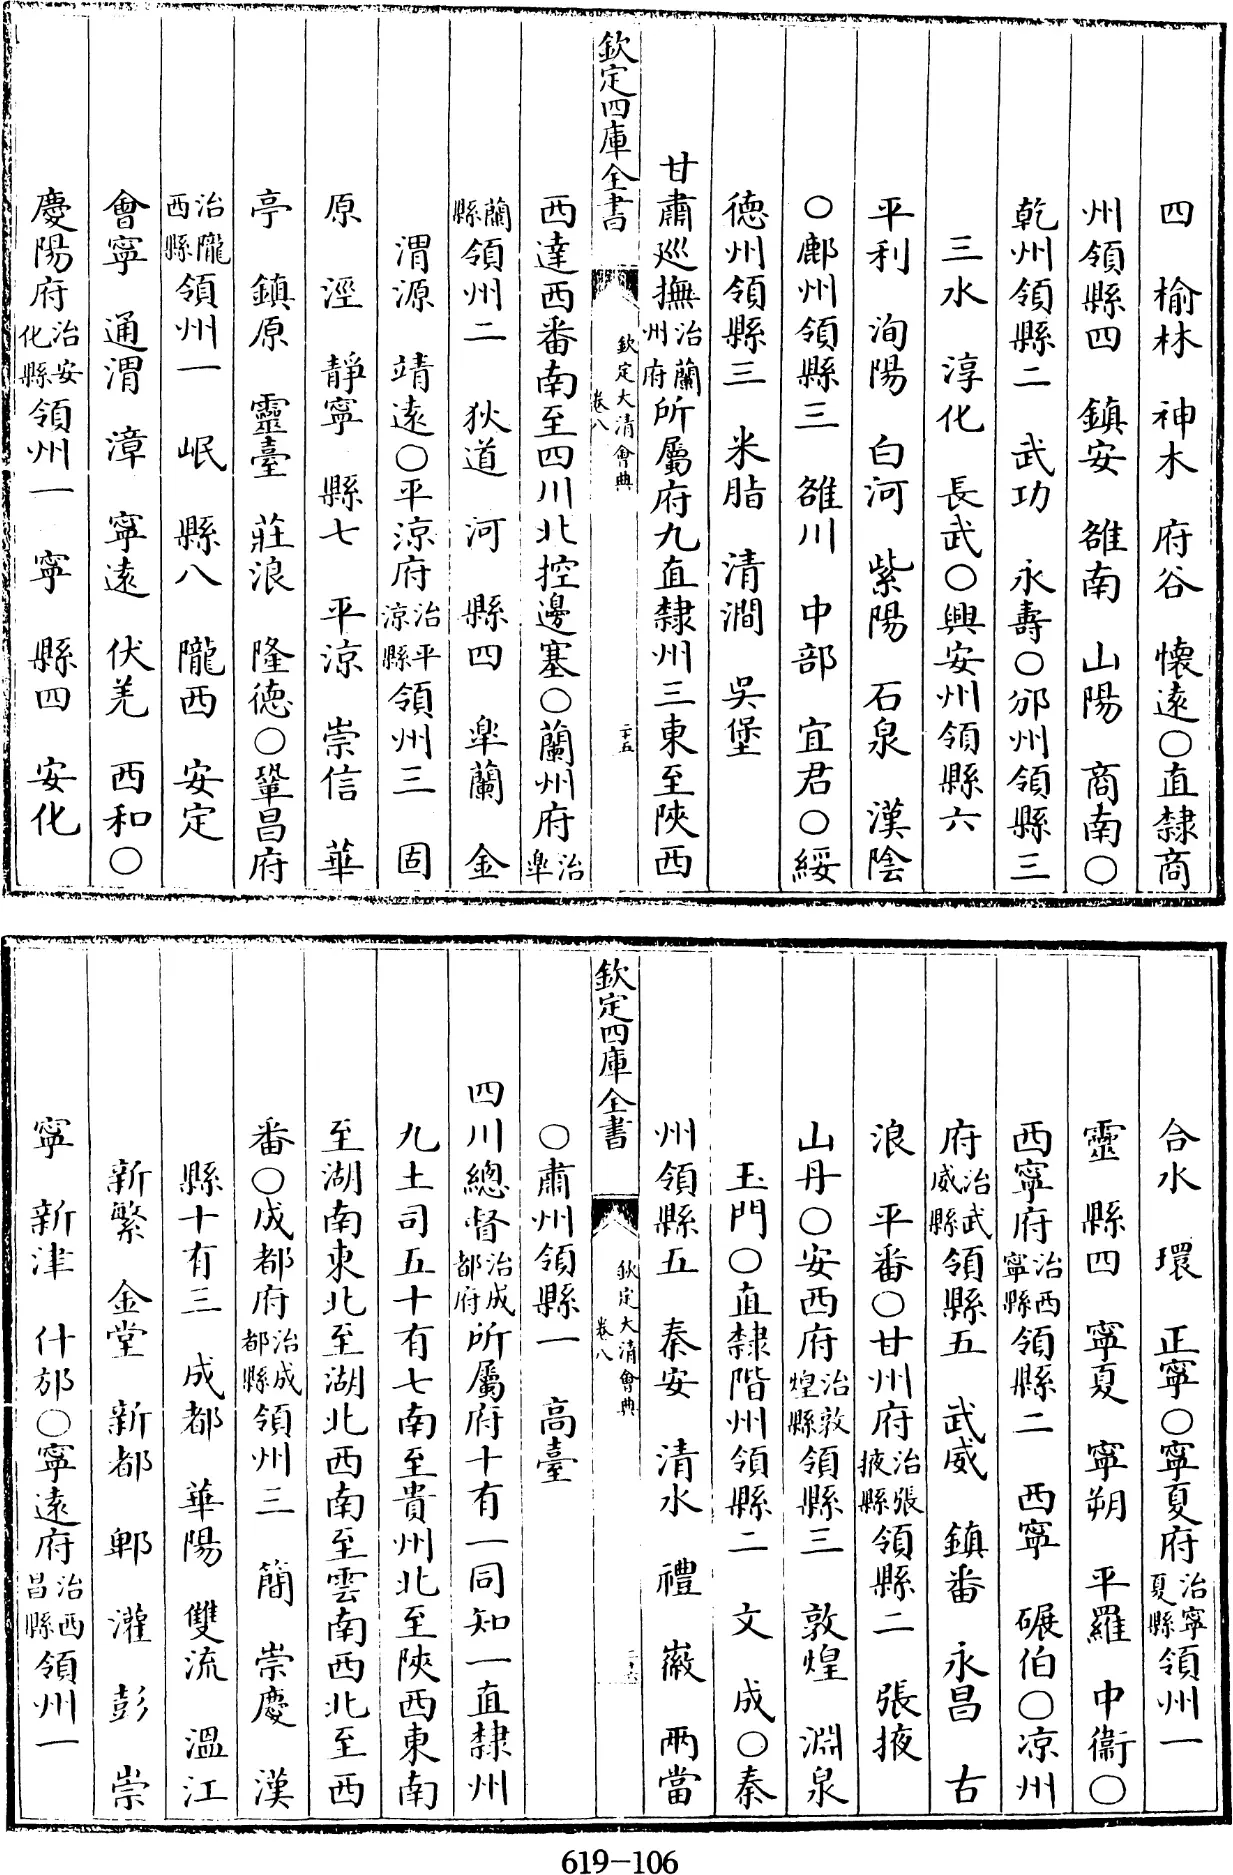 四　榆林　神木　府谷　懷遠○直隸商
州領縣四　鎮安　雒南　山陽　商南○
乾州領縣二　武功　永壽○邠州領縣三
三水　淳化　長武○興安州領縣六
平利　洵陽　白河　紫陽　石泉　漢陰
○鄜州領縣三　雒川　中部　宜君○綏
德州領縣三　米脂　清澗　吳堡
甘肅巡撫治蘭州府所屬府九直隸州三東至陝西
欽定四庫全書
欽定大清會典
卷八
二十五
西達西番南至四川北控邊塞○蘭州府治臯
蘭縣領州二　狄道　河　縣四　臯蘭　金
渭源　靖遠○平涼府治平涼縣領州三　固
原　涇　靜寧　縣七　平涼　崇信　華
亭　鎮原　靈臺　莊浪　隆德○鞏昌府
治隴西縣領州一　岷　縣八　隴西　安定
會寧　通渭　漳　寧遠　伏羌　西和○
慶陽府治安化縣領州一　寧　縣四　安化
合水　環　正寧○寧夏府治寧夏縣領州一
靈　縣四　寧夏　寧朔　平羅　中衞○
西寧府治西寧縣領縣二　西寧　碾伯○凉州
府治武威縣領縣五　武威　鎮番　永昌　古
浪　平番○甘州府治張掖縣領縣二　張掖
山丹○安西府治敦煌縣領縣三　敦煌　淵泉
玉門○直隸階州領縣二　文　成○秦
州領縣五　秦安　清水　禮　徽　兩當
欽定四庫全書
欽定大清會典
卷八
二十六
○肅州領縣一　高臺
四川總督治成都府所屬府十有一同知一直隸州
九土司五十有七南至貴州北至陝西東南
至湖南東北至湖北西南至雲南西北至西
番○成都府治成都縣領州三　簡　崇慶　漢
縣十有三　成都　華陽　雙流　溫江
新繁　金堂　新都　郫　灌　彭　崇
寧　新津　什邡○寧遠府治西昌縣領州一
619-106